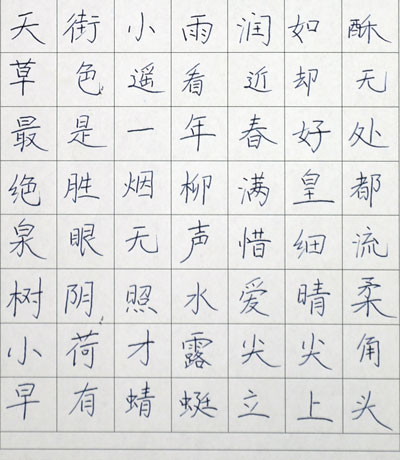 天街小雨润如酥
草色遥看近却无
最是一年春好处
绝胜烟柳满皇都
泉眼无声惜细流
树阴照水爱晴柔
小荷才露尖尖角
早有蜻蜓立上头